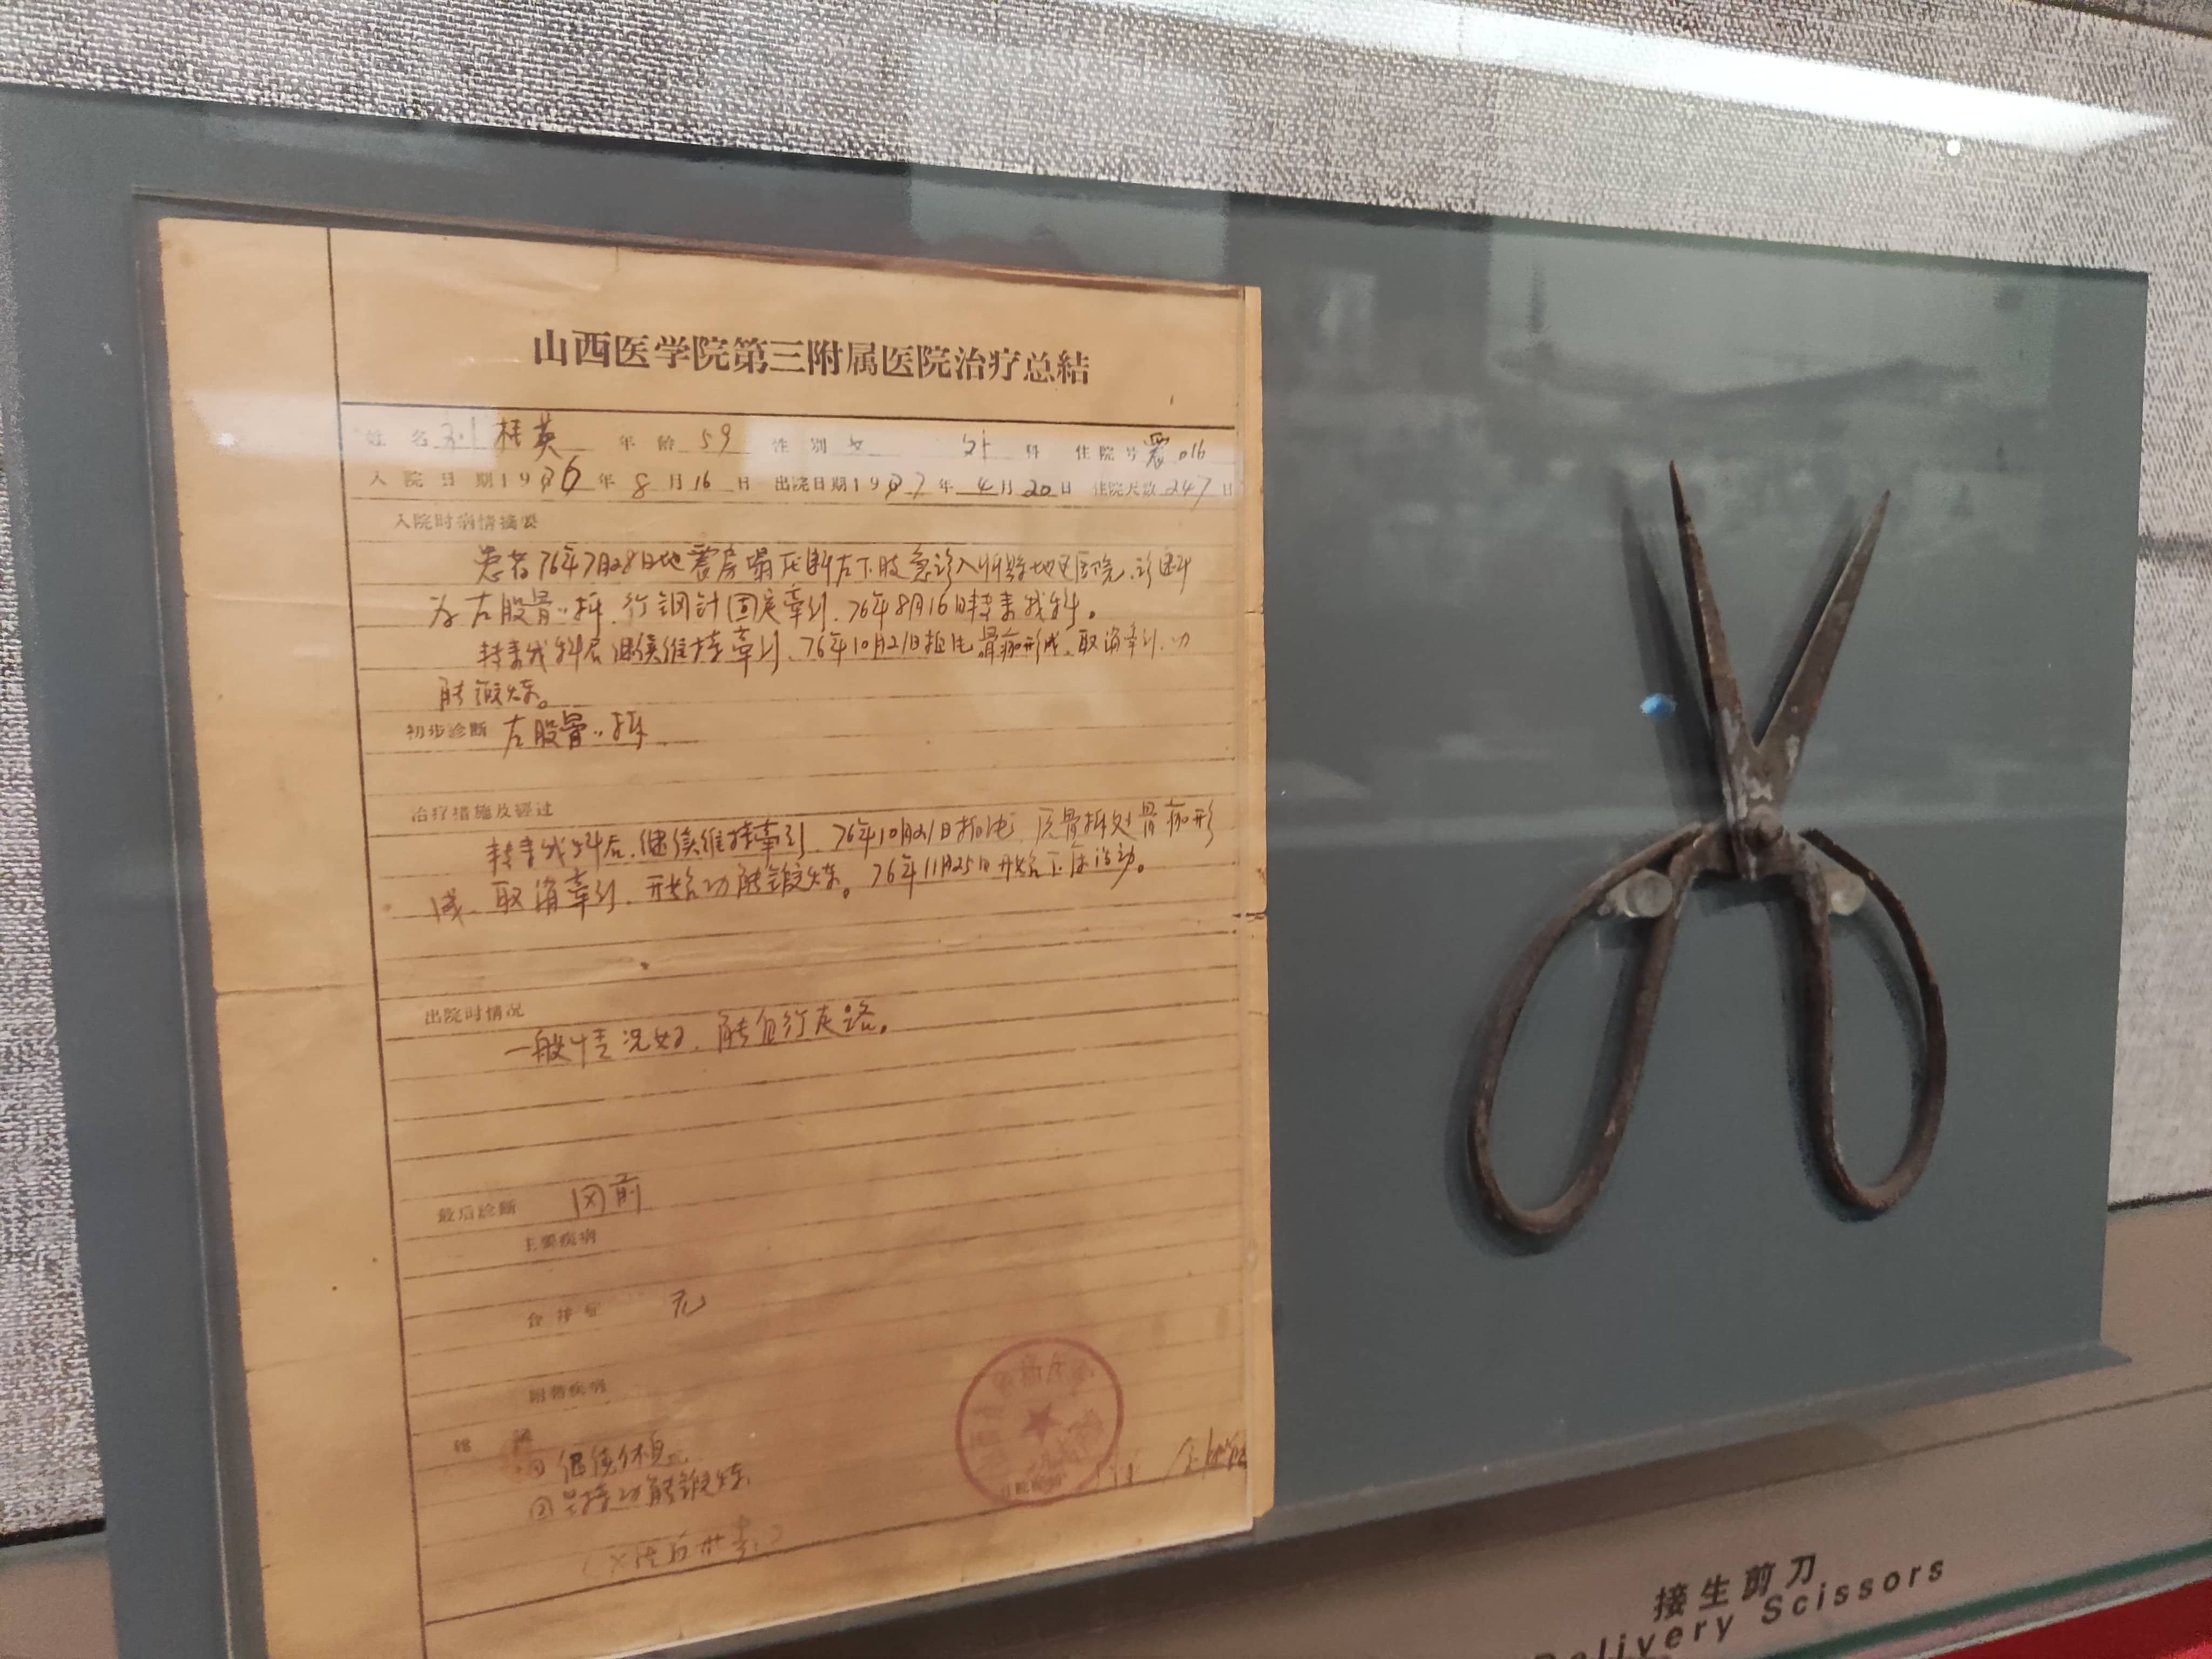 山西医学院第三附属医院治疗总結
姓名 桂英 年龄 59 性别 女 外 科 住院号 震016
入院日期 1976年8月16日 出院日期 1977年4月20日 住院天数 247日
入院时病情摘要
患者76年7月28日地震房塌压断左下肢急诊入忻县地区医院,诊断
为左股骨骨折,行钢针固定牵引,76年8月16日转来我科。
转来我科后继续维持牵引,76年10月21日拍片骨痂形成,取消牵引,功
能锻炼。
初步診断 左股骨骨折
治疗措施及經过
转来我科后,继续维持牵引,76年10月21日拍片,左骨折处骨痂形
成,取消牵引,开始功能锻炼。76年11月25日开始下床活动。
出院时情况
一般情况好,能自行走路。
最后診断 同前
主要疾病
合并症 无
附带疾病
① 继续休息
② 坚持功能锻炼
接生剪刀
Delivery Scissors